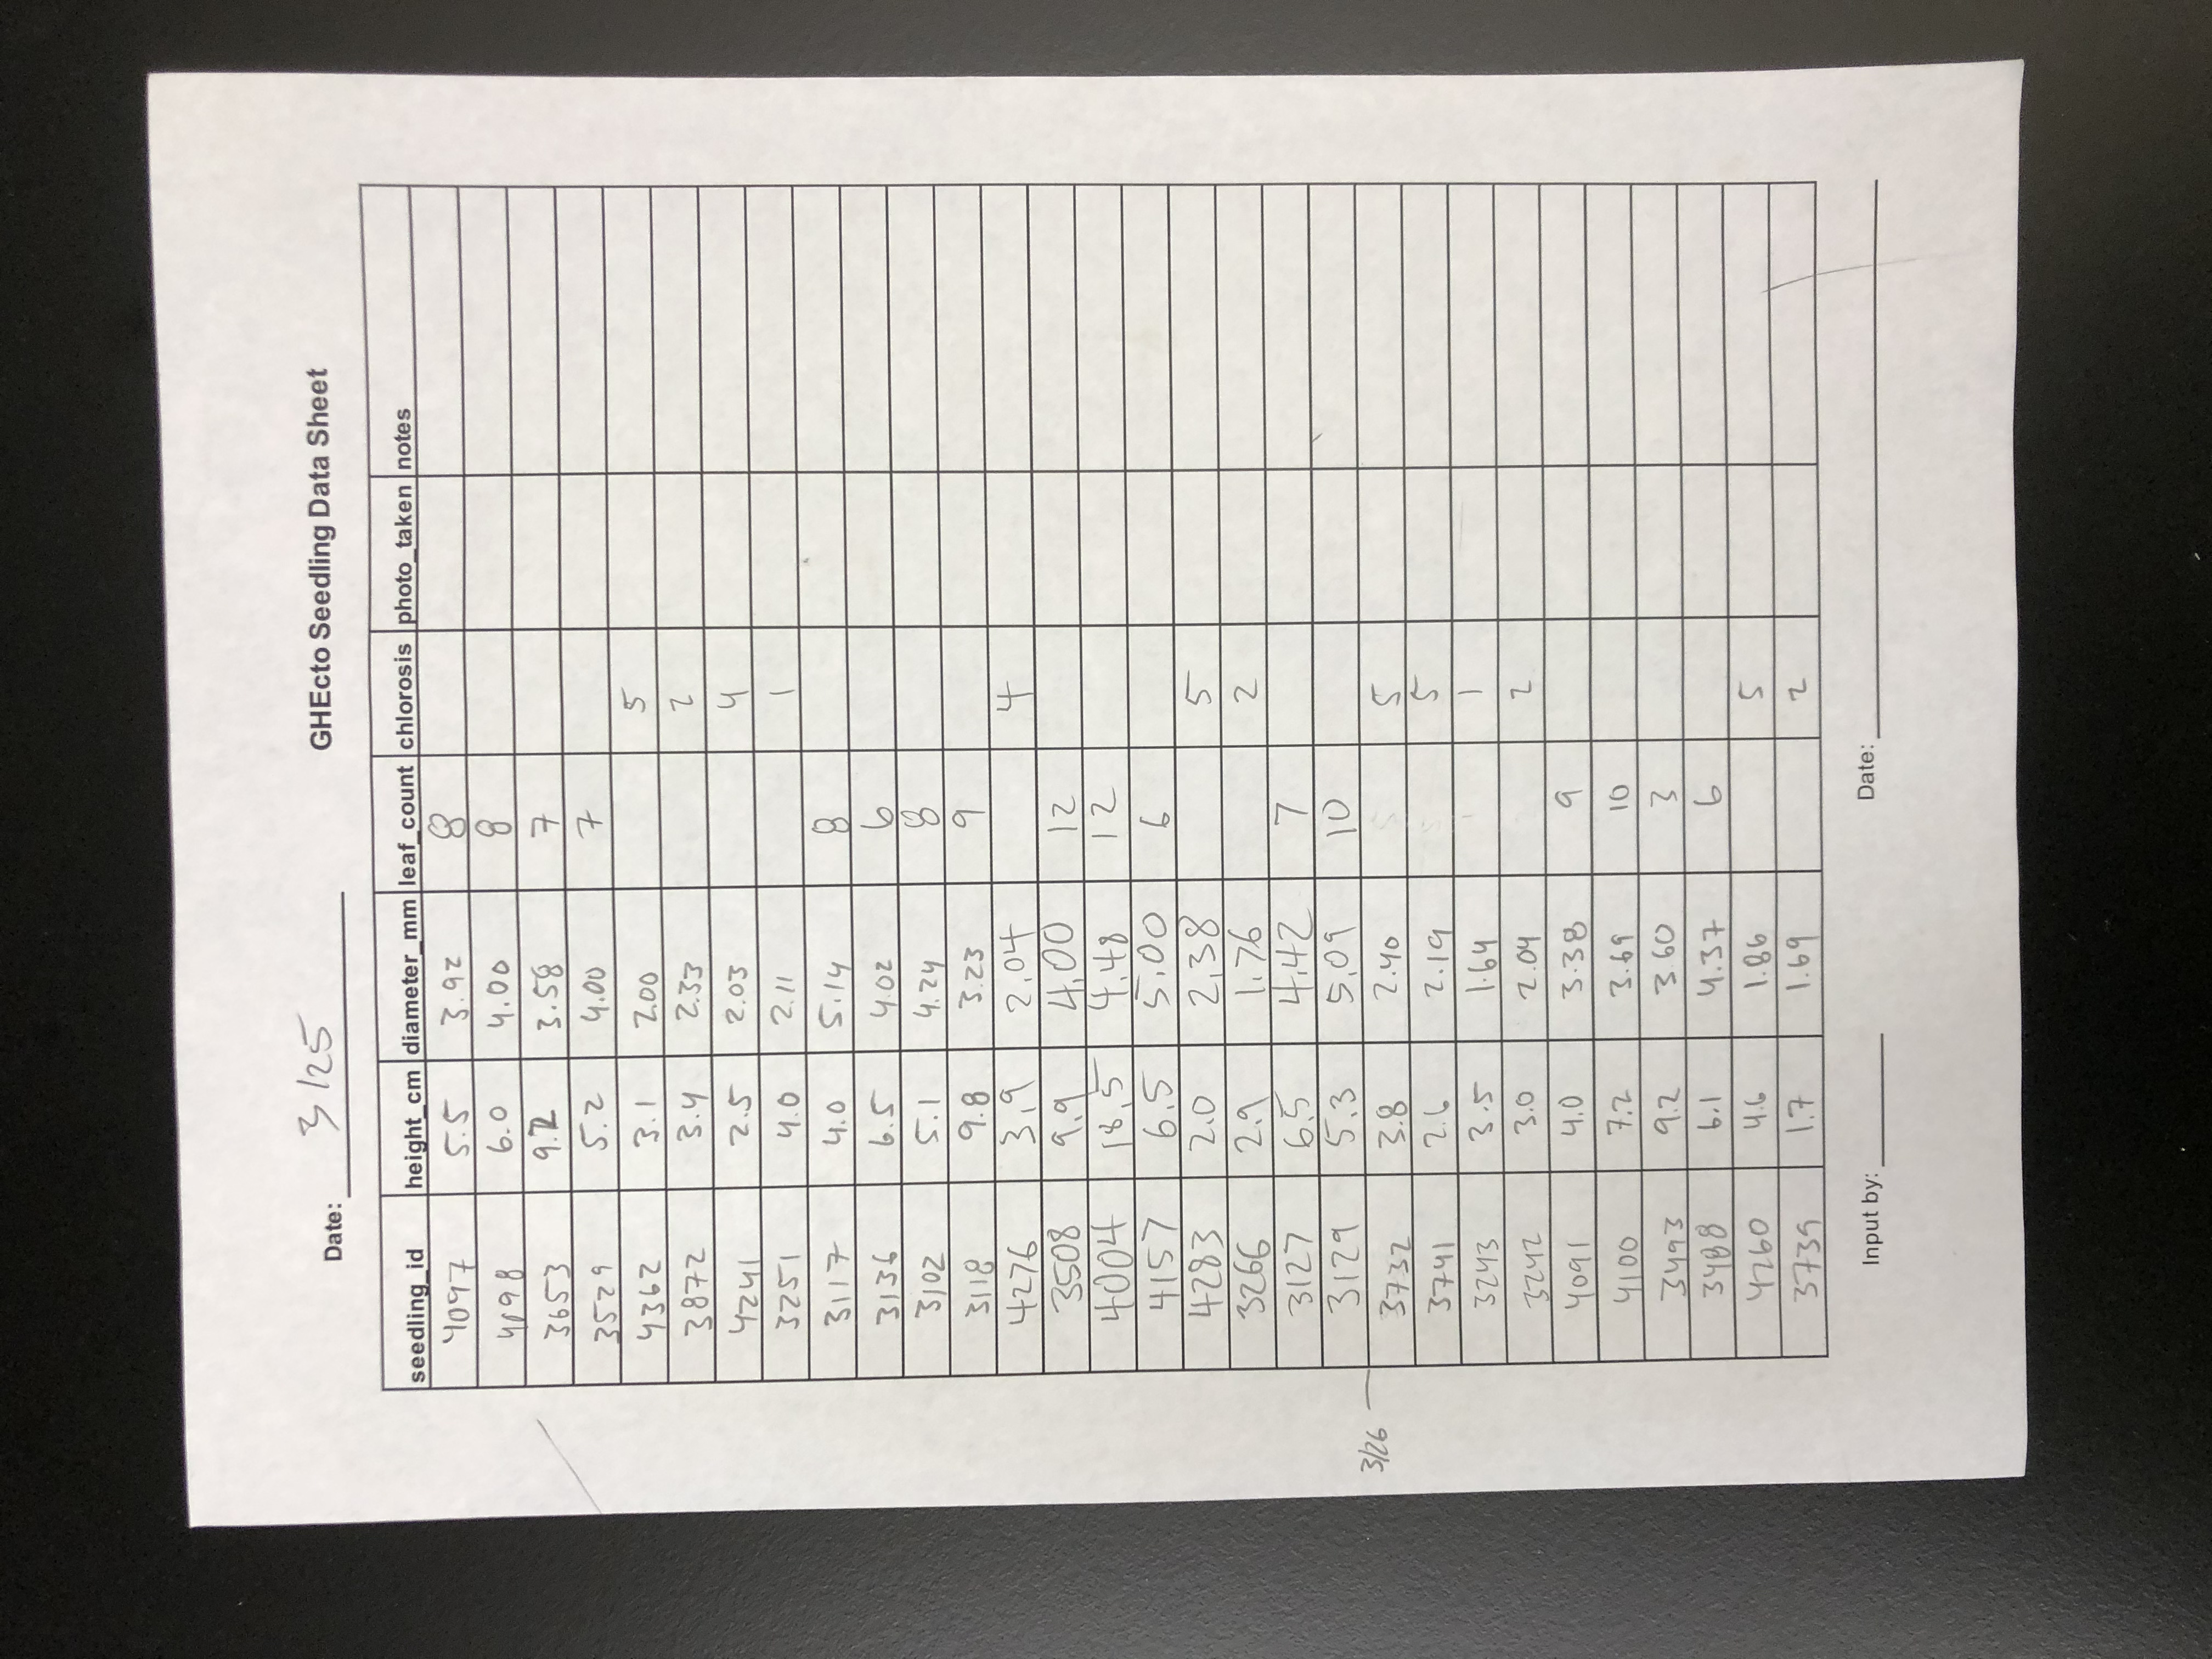 GHEcto Seedling Data Sheet
Date: 3/25
seedling_id height_cm diameter_mm leaf_count chlorosis photo_taken notes
4097 5.5 3.92 8
4098 6.0 4.00 8
3653 9.2 3.58 7
3529 5.2 4.00 7
4362 3.1 2.00 5
3872 3.4 2.33 2
4241 2.5 2.03 4
3251 4.0 2.11 1
3117 4.0 5.14 8
3136 6.5 4.02 6
3102 5.1 4.24 8
3118 9.8 3.23 9
4276 3.9 2.04 4
3508 9.9 4.00 12
4004 18.5 4.48 12
4157 6.5 5.00 6
4283 2.0 2.38 5
3266 2.9 1.76 2
3127 6.5 4.42 7
3129 5.3 5.09 10
3/26 —
3732 3.8 2.40 5
3741 2.6 2.19 5
3243 3.5 1.64 1
3242 3.0 2.04 2
4091 4.0 3.38 9
4100 7.2 3.69 10
3493 9.2 3.60 3
3488 6.1 4.37 6
4260 4.6 1.86 5
3739 1.7 1.69 2
Input by: Date: